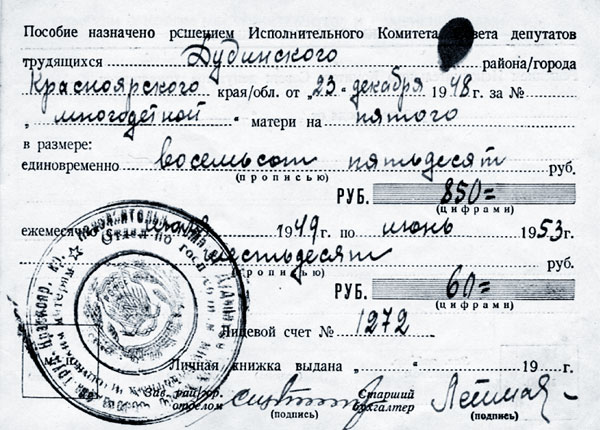 Пособие назначено решением Исполнительного Комитета Совета депутатов
трудящихся Дубинского района/города
Красноярского края/обл. от „23" декабря 1948 г. за №
„многодетной" матери на пятого
в размере:
единовременно восемьсот пятьдесят руб.
(прописью)
РУБ. 850=
(цифрами)
ежемесячно с 1949 г. по июнь 1953 г.
шестьдесят руб.
(прописью)
РУБ. 60=
(цифрами)
Лицевой счет № 1272
Личная книжка выдана „ " 19 г.
Зав. рай/гор. отделом
(подпись)
Старший бухгалтер
(подпись)